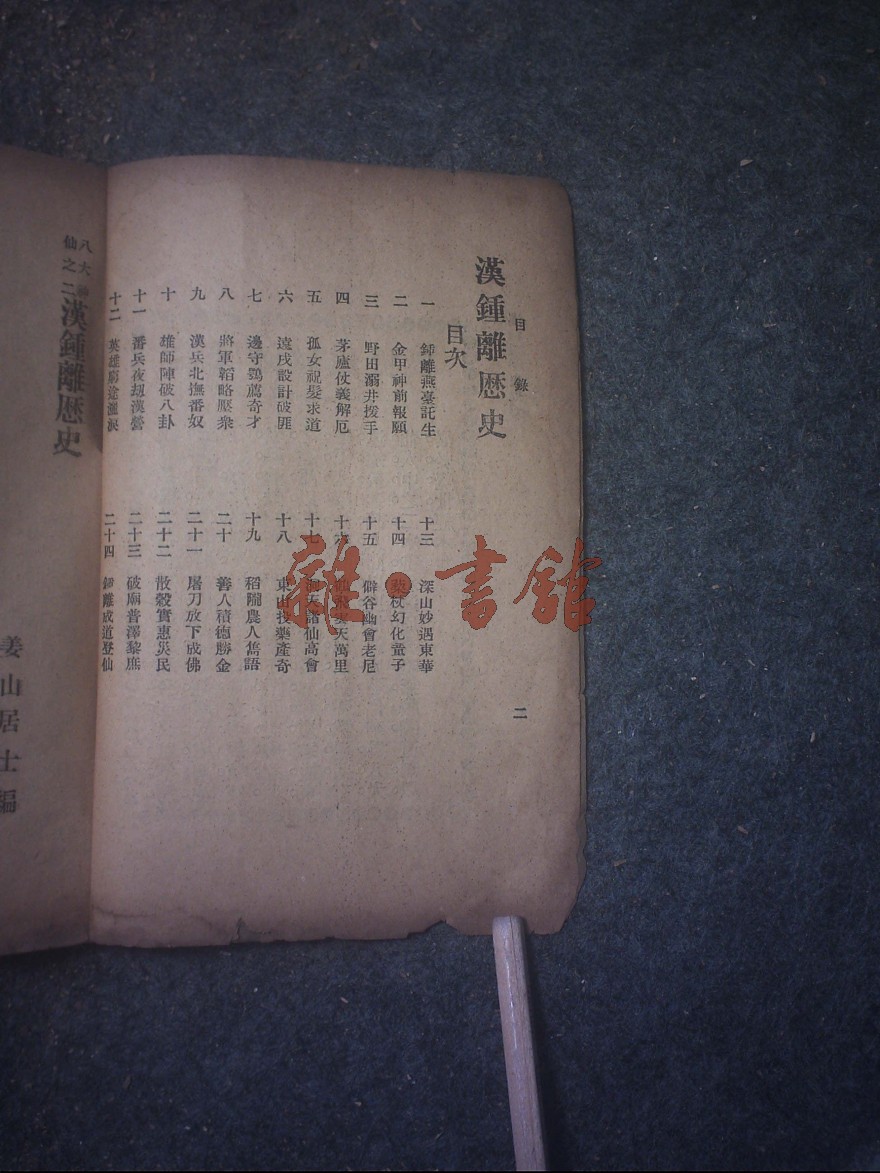 目錄
二
漢鍾離歷史
目次
一 鍾離燕臺託生
二 金甲神前報願
三 野田溺井拨手
四 茅廬仗義解厄
五 孤女祝髮求道
六 遠戌設計破匪
七 邊守鶚薦奇才
八 將軍韜略壓衆
九 漢兵北撫番奴
十 雄師陣破八卦
十一 番兵夜刼漢營
十二 英雄窮途灑淚
十三 深山妙遇東華
十四 杖幻化童子
十五 僻谷幽會老尼
十六 天萬里
十七 洞天諸仙高會
十八 東山投藥產奇
十九 稻隴農人雋語
二十 善人積德勝金
二十一 屠刀放下成佛
二十二 散穀實惠災民
二十三 破廟普澤黎庶
二十四 鍾離成道登仙
八大
仙之二
漢鍾離歷史
姜山居士編
雜·書館